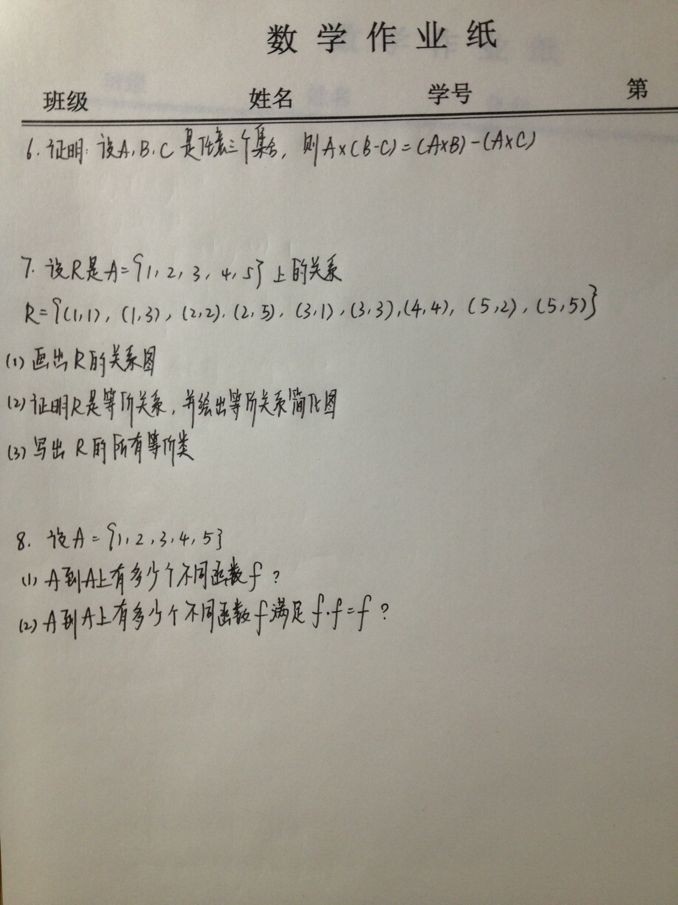 数学作业纸
班级 姓名 学号 第
6. 证明: 设A,B,C是任意三个集合, 则A×(B-C)=(A×B)-(A×C)
7. 设R是A={1,2,3,4,5}上的关系
R={(1,1),(1,3),(2,2),(2,5),(3,1),(3,3),(4,4),(5,2),(5,5)}
(1) 画出R的关系图
(2) 证明R是等价关系,并绘出等价关系简化图
(3) 写出R的所有等价类
8. 设A={1,2,3,4,5}
(1) A到A上有多少个不同函数f?
(2) A到A上有多少个不同函数f满足f·f=f?